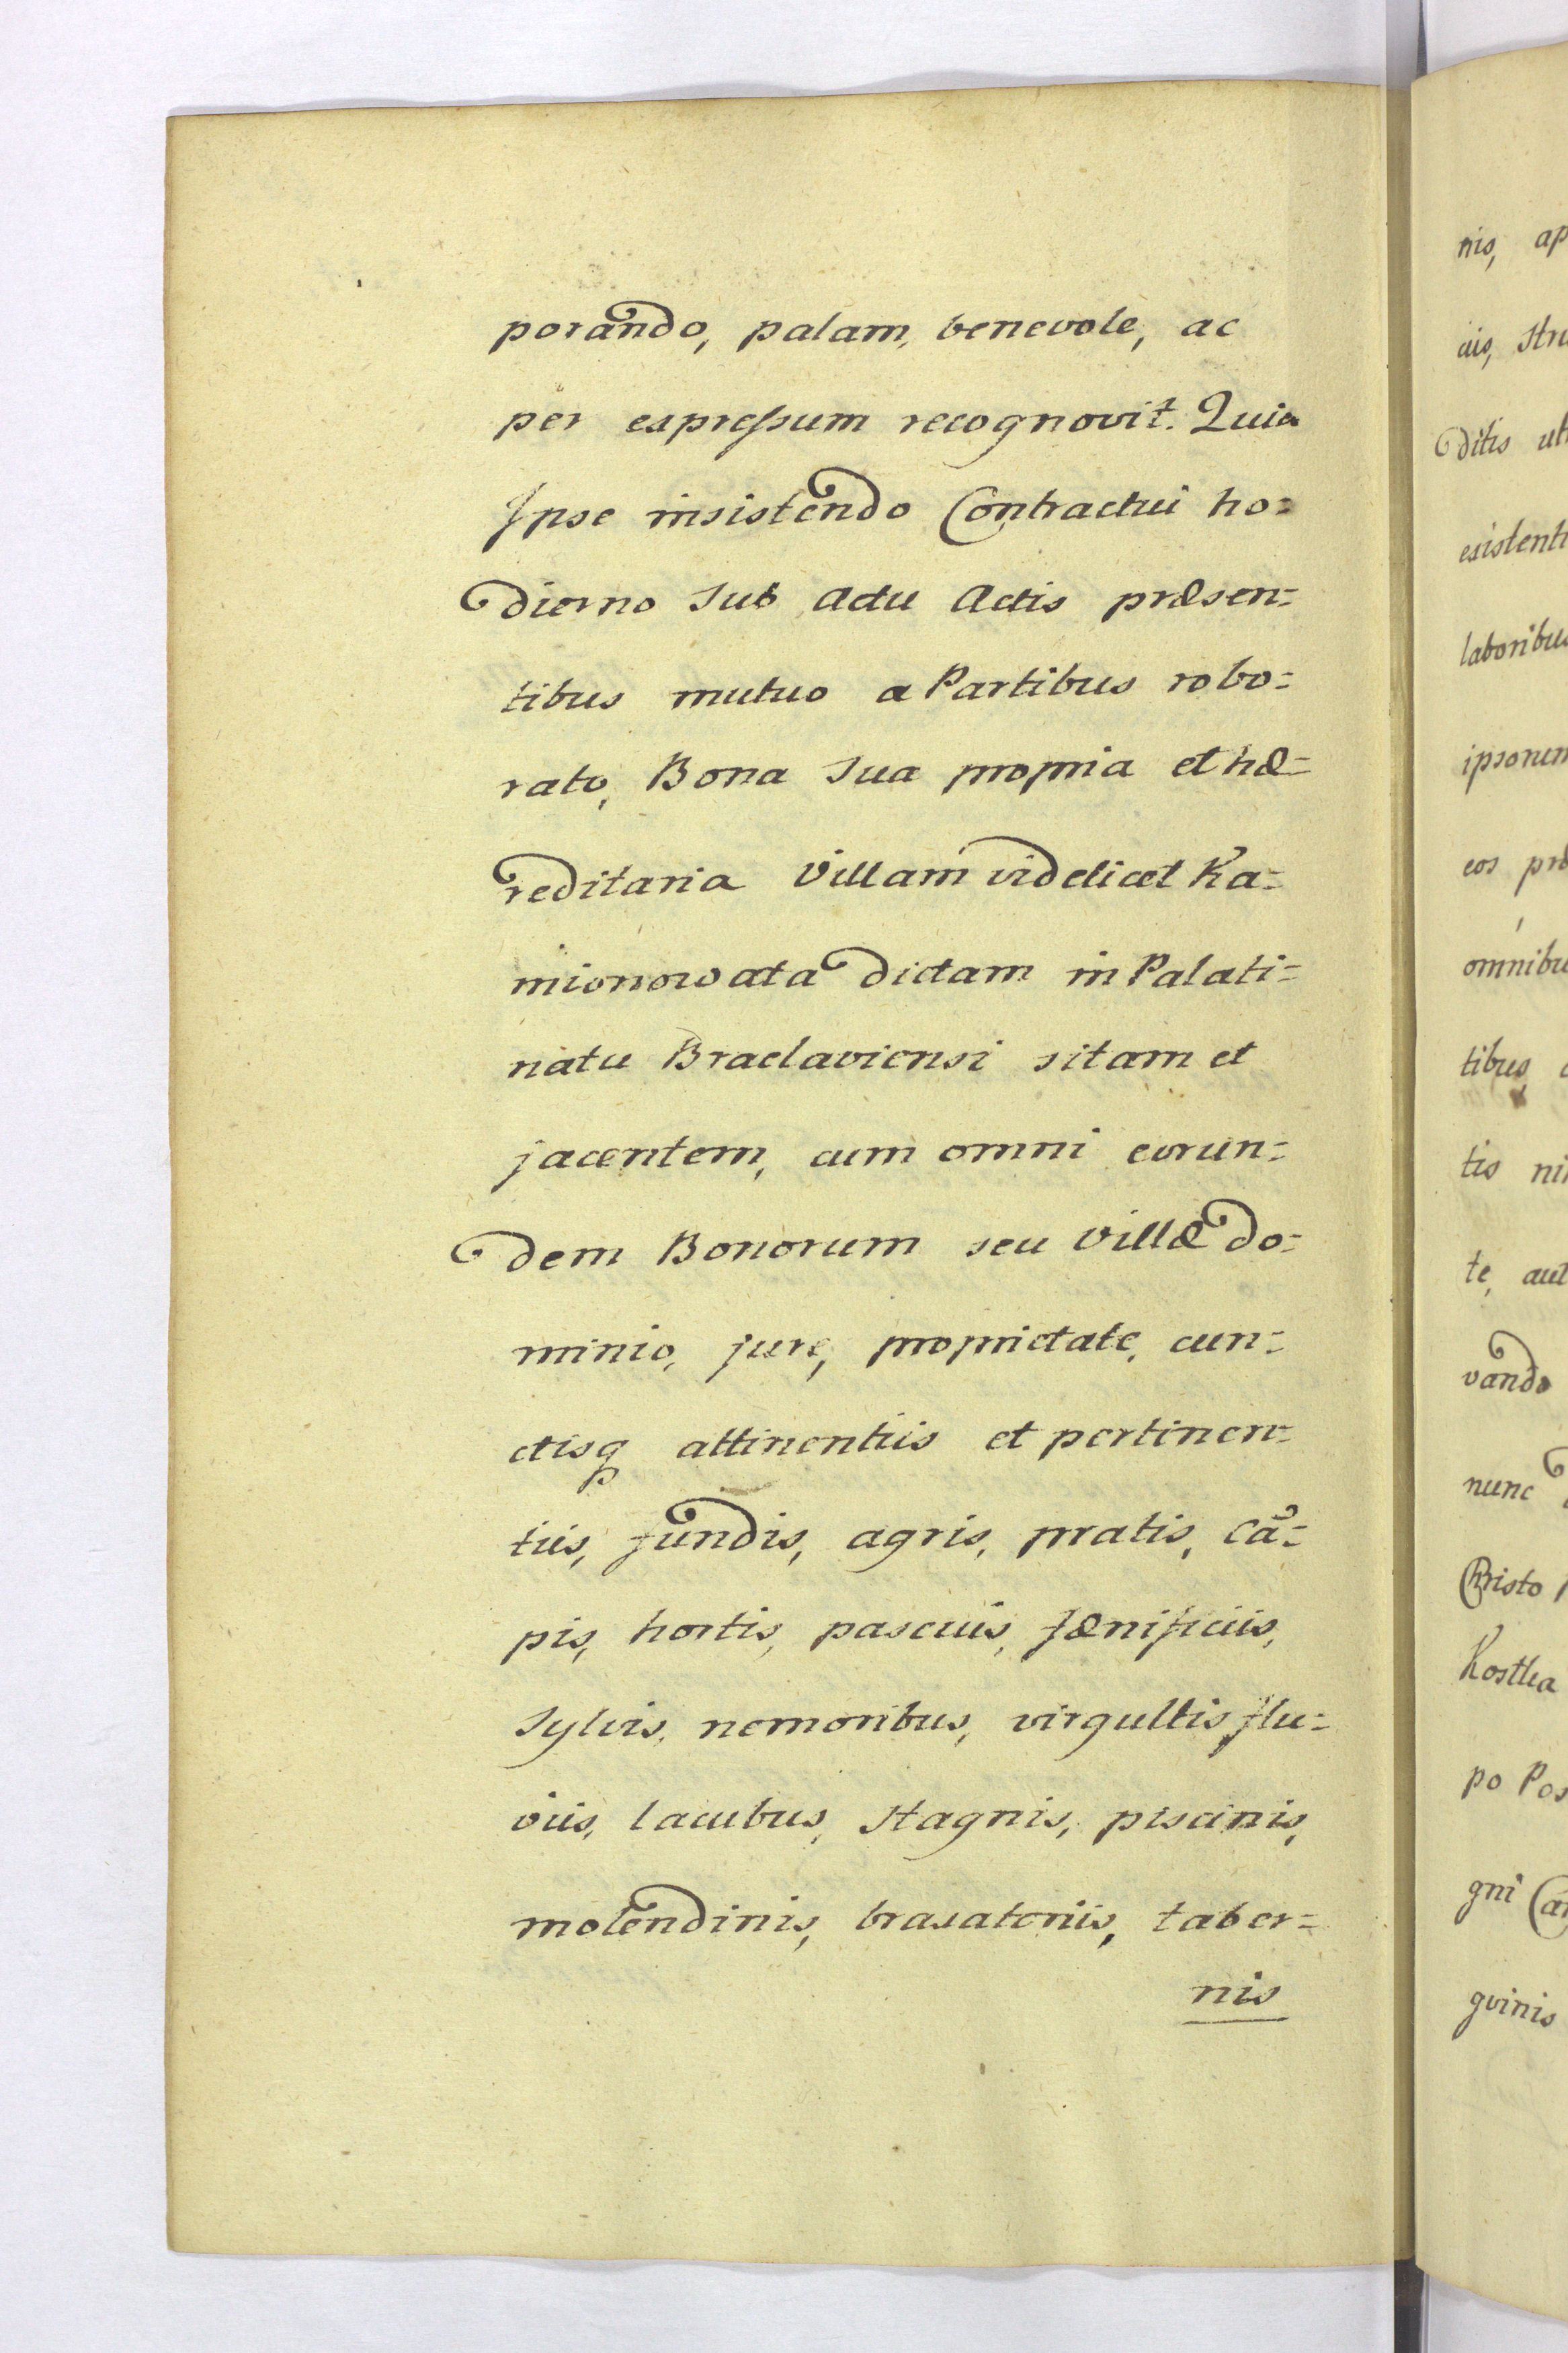 porando, palam, benevole, ac
per expressum recognovit. Quia
Ipse insistendo Contractui ho=
dierno sub actu Actis præsen=
tibus mutuo a Partibus robo=
rato, Bona sua propria et hæ=
reditaria Villam videlicet Ka=
mionowata dictam in Palati=
natu Braclaviensi sitam et
jacentem, cum omni eorun=
dem Bonorum seu Villæ do=
minio, jure, proprietate, cun=
ctisq attinentiis et pertinen=
tiis, fundis, agris, pratis, cã=
pis, hortis, pascuis, fænificiis,
sylvis, nemoribus, virgultis flu=
viis, lacubus, stagnis, piscinis,
molendinis, braxatoriis, taber=
nis
nis, ap
ditis
existent
laboribus
ipsorum
eos præ
omnibu
tibus
tis
te, aut
vando
nunc
Christo
Kostka
po Pos
gni
gvinis